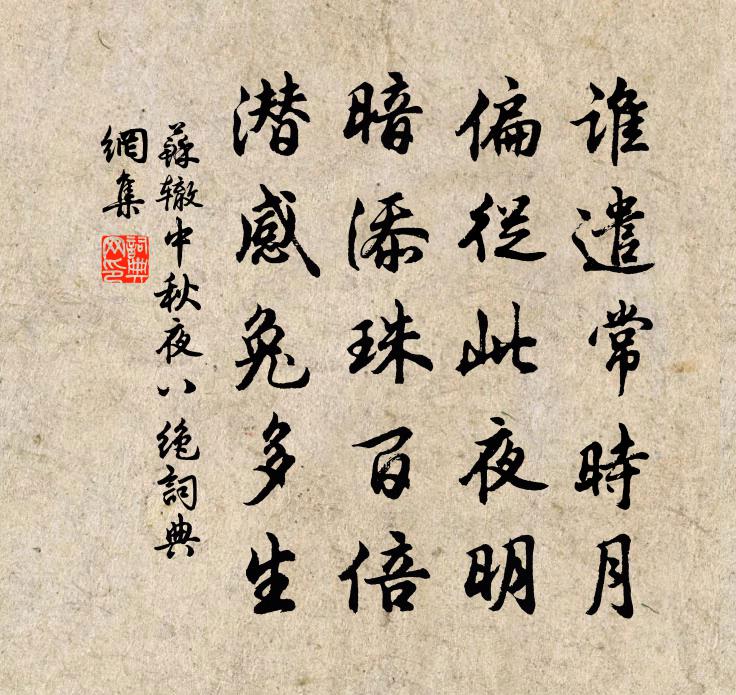 谁遣常時月
偏從此夜明
暗添珠百倍
潜感兔多生
蘇辙中秋夜八绝詞典
網集
詞典網印